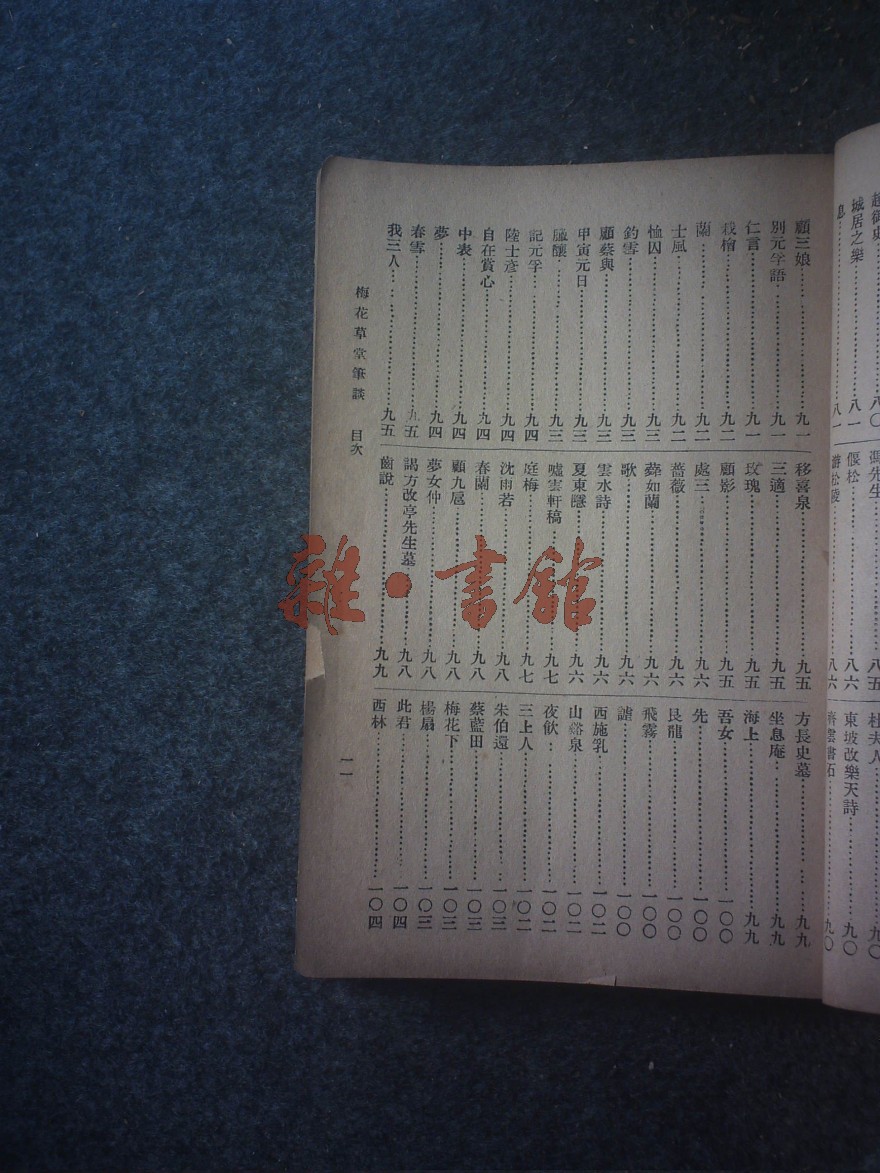 城居之樂⋯⋯八一
息⋯⋯八一
馮先生⋯⋯八五
偃松⋯⋯八六
游松陵⋯⋯八六
杜夫人⋯⋯九〇
東坡改樂天詩⋯⋯九〇
顧三娘⋯⋯九一
別元孚語⋯⋯九一
仁言⋯⋯九一
栽檜⋯⋯九二
蘭⋯⋯九二
士風⋯⋯九二
恤囚⋯⋯九三
釣雪⋯⋯九三
顧蔡與⋯⋯九三
甲寅元日⋯⋯九三
⋯⋯九三
記元孚⋯⋯九四
陸士彥⋯⋯九四
自在賞心⋯⋯九四
中表⋯⋯九四
夢⋯⋯九四
春雪⋯⋯九五
我三人⋯⋯九五
移喜泉⋯⋯九五
三適⋯⋯九五
玫瑰⋯⋯九五
顧影⋯⋯九五
處三⋯⋯九六
薔薇⋯⋯九六
蔡如蘭⋯⋯九六
歌⋯⋯九六
雲水詩⋯⋯九六
夏東隱⋯⋯九六
噓雲軒稿⋯⋯九七
庭梅⋯⋯九七
沈雨若⋯⋯九八
春蘭⋯⋯九八
顧九扈⋯⋯九八
夢女仲⋯⋯九八
謁方改亭先生墓⋯⋯九八
齒說⋯⋯九九
方長史墓⋯⋯九九
坐息庵⋯⋯九九
海上⋯⋯九九
吾女⋯⋯一〇〇
先⋯⋯一〇〇
艮龍⋯⋯一〇〇
飛霧⋯⋯一〇〇
謔⋯⋯一〇〇
西施乳⋯⋯一〇二
山谿泉⋯⋯一〇二
夜飲⋯⋯一〇二
三上人⋯⋯一〇二
朱伯還⋯⋯一〇三
蔡藍田⋯⋯一〇三
梅花下⋯⋯一〇三
楊扇⋯⋯一〇三
此君⋯⋯一〇四
西林⋯⋯一〇四
梅花草堂筆談　目次
一一
雜·書館